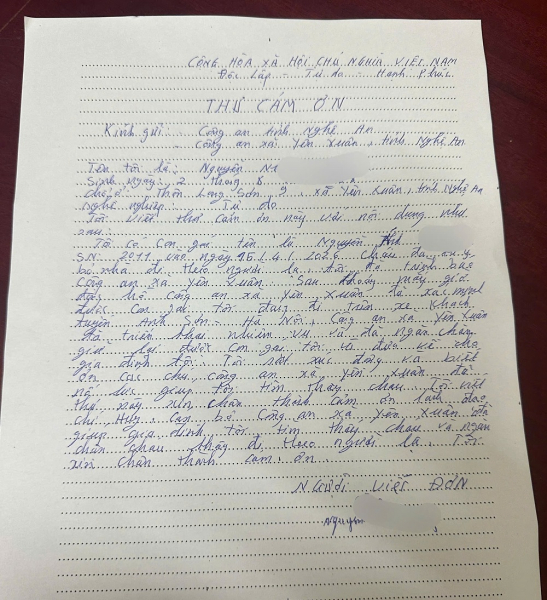 CỘNG HÒA XÃ HỘI CHỦ NGHĨA VIỆT NAM
Độc Lập - Tự do - Hạnh Phúc
THƯ CẢM ƠN
Kính gửi - Công an tỉnh Nghệ An
- Công an xã Yên Xuân, tỉnh Nghệ An
Tên tôi là: Nguyễn
Sinh ngày 2 tháng 8
Chỗ ở: Thôn Long Sơn 2, xã Yên Xuân, tỉnh Nghệ An
Nghề nghiệp: Tự do
Tôi viết thư cảm ơn này với nội dung như
sau:
Tôi có con gái tên là Nguyễn
SN: 2011 vào ngày 15/4/2026 cháu đã
bỏ nhà đi theo người lạ, tôi đã trình báo
Công an xã Yên Xuân. Sau mấy giờ
đồng hồ Công an xã Yên Xuân đã xác minh
được con gái tôi đang đi trên xe khách
tuyến Anh Sơn - Hà Nội, Công an xã Yên Xuân
đã triển khai nhiệm vụ và đã ngăn chặn
giữ lại được con gái tôi và đưa về cho
gia đình tôi. Tôi rất xúc động và biết
ơn các chú công an xã Yên Xuân đã
nỗ lực giúp tôi tìm thấy cháu. Tôi viết
thư này xin chân thành cảm ơn lãnh đạo,
chỉ huy, cán bộ Công an xã Yên Xuân đã
giúp gia đình tôi tìm thấy cháu và ngăn
chặn cháu đi theo người lạ. Tôi
xin chân thành cảm ơn.
NGƯỜI VIẾT ĐƠN
Nguyễn